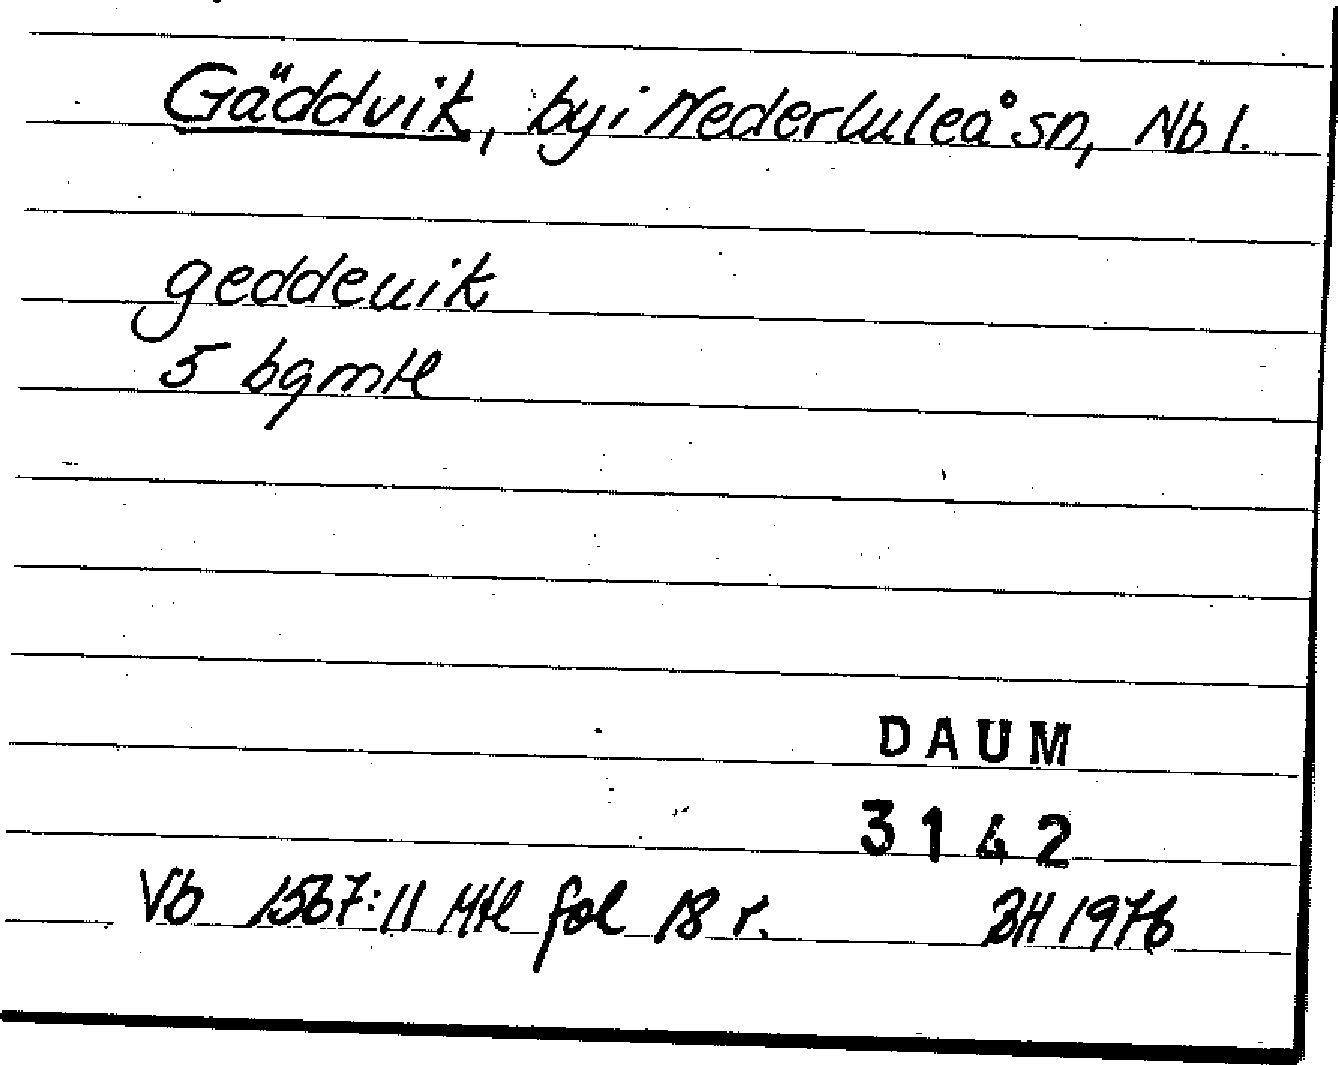 Gäddvik, by i Nederluleå sn, Nb l.
geddeuik
5 bgmtl
DAUM
3142
Vb 1567:11 Mtl fol 18 r. BH 1976